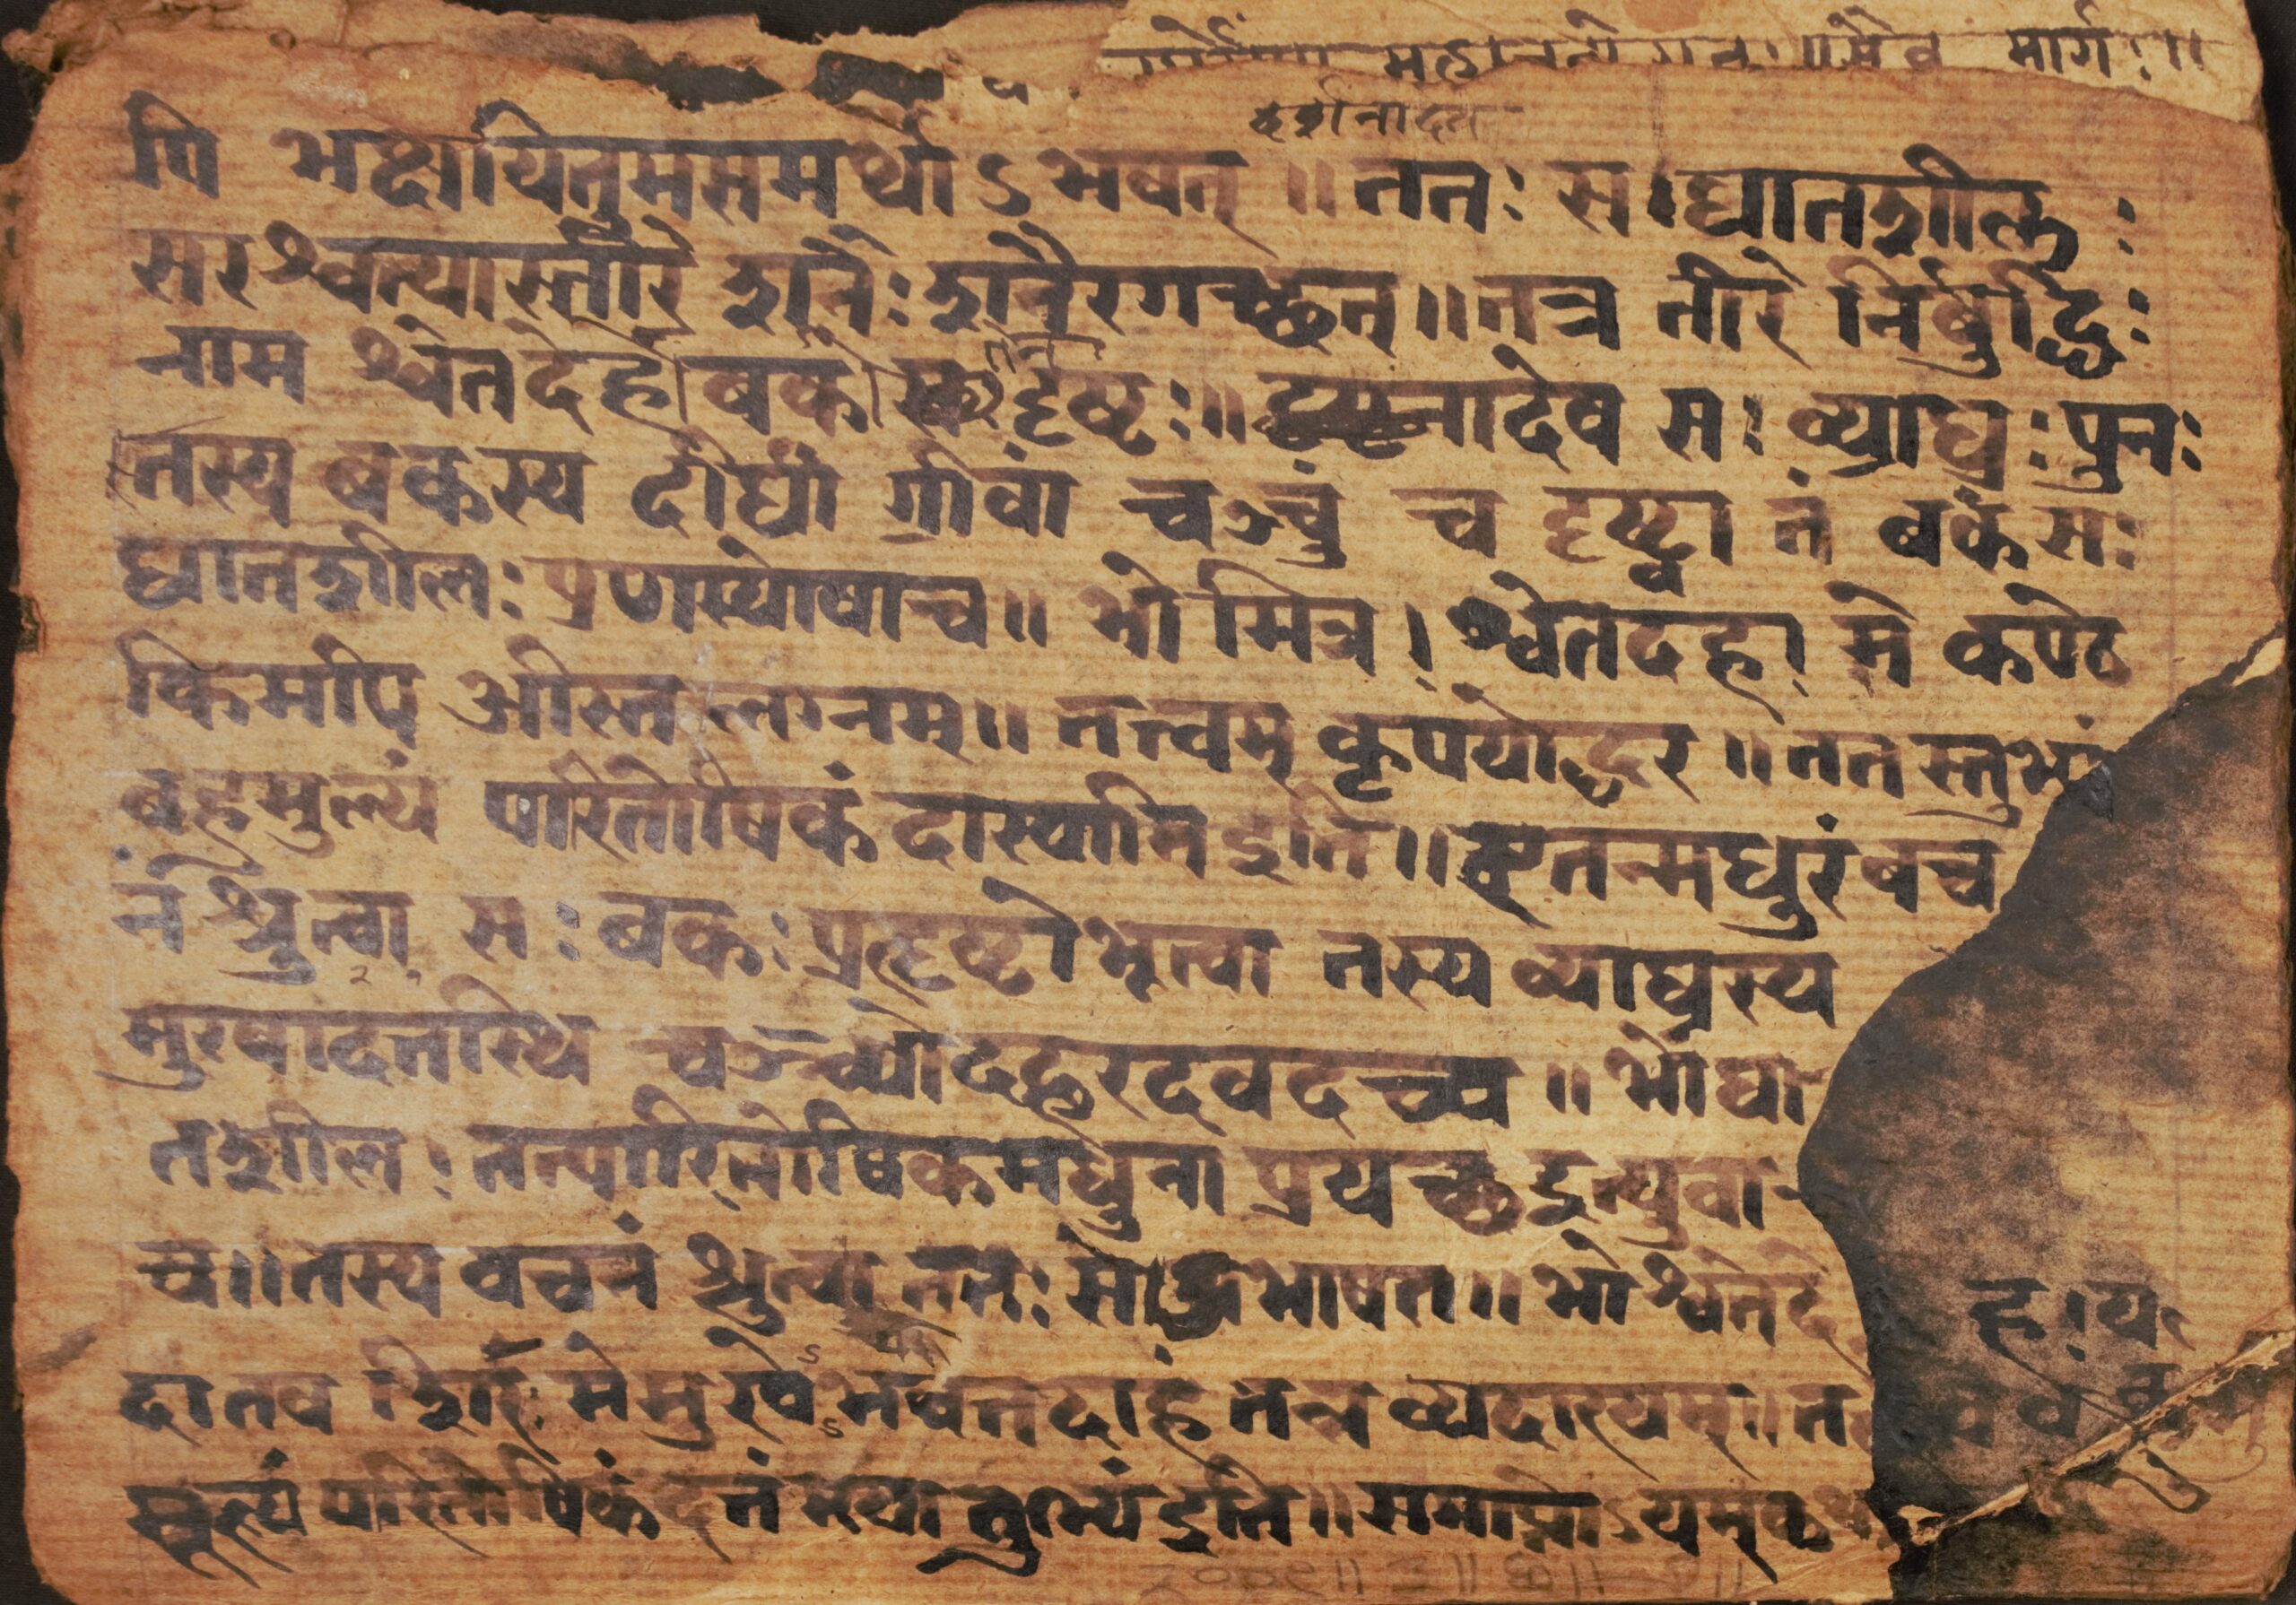 महाजनो मार्गः॥
दर्शनाद
पि भक्षयितुमसमर्थोऽभवत्॥ततः स।घातशीलः
सरश्वत्यास्तीरे शनैः शनैरगच्छत्॥तत्र तीरे निर्बुद्धिः
नाम श्वेतदेहो बको दृष्टः॥ नादेव सः व्याघ्रः पुनः
तस्य बकस्य दीर्घां ग्रीवां चञ्चुं च दृष्ट्वा तं बकं सः
घातशीलः प्रणम्योवाच॥ भो मित्र। श्वेतदेह। मे कण्ठे
किमपि अस्ति लग्नम्॥ तत्त्वम् कृपयोद्धर॥ततस्तुभ्यं
बहुमुल्यं पारितोषिकं दास्यामि इति॥एतन्मधुरं वच
नं श्रुत्वा सः बकः प्रहृष्टो भूत्वा तस्य व्याघ्रस्य
मुखादस्थि चञ्च्वोदद्धरदवदच्च॥भो घा
तशील। तत्पारितोषिकमधुना प्रयच्छ इत्युवा
च॥तस्य वचनं श्रुत्वा ततः सो भाषत॥भो श्वेतदे ह।य
दा तव शिरः मे मुखे भवत्तदाहं तन्न व्यदारयम्॥त
मूल्यं पारितोषिकं दत्तं मया तुभ्यं इति॥समाप्तोऽयम्